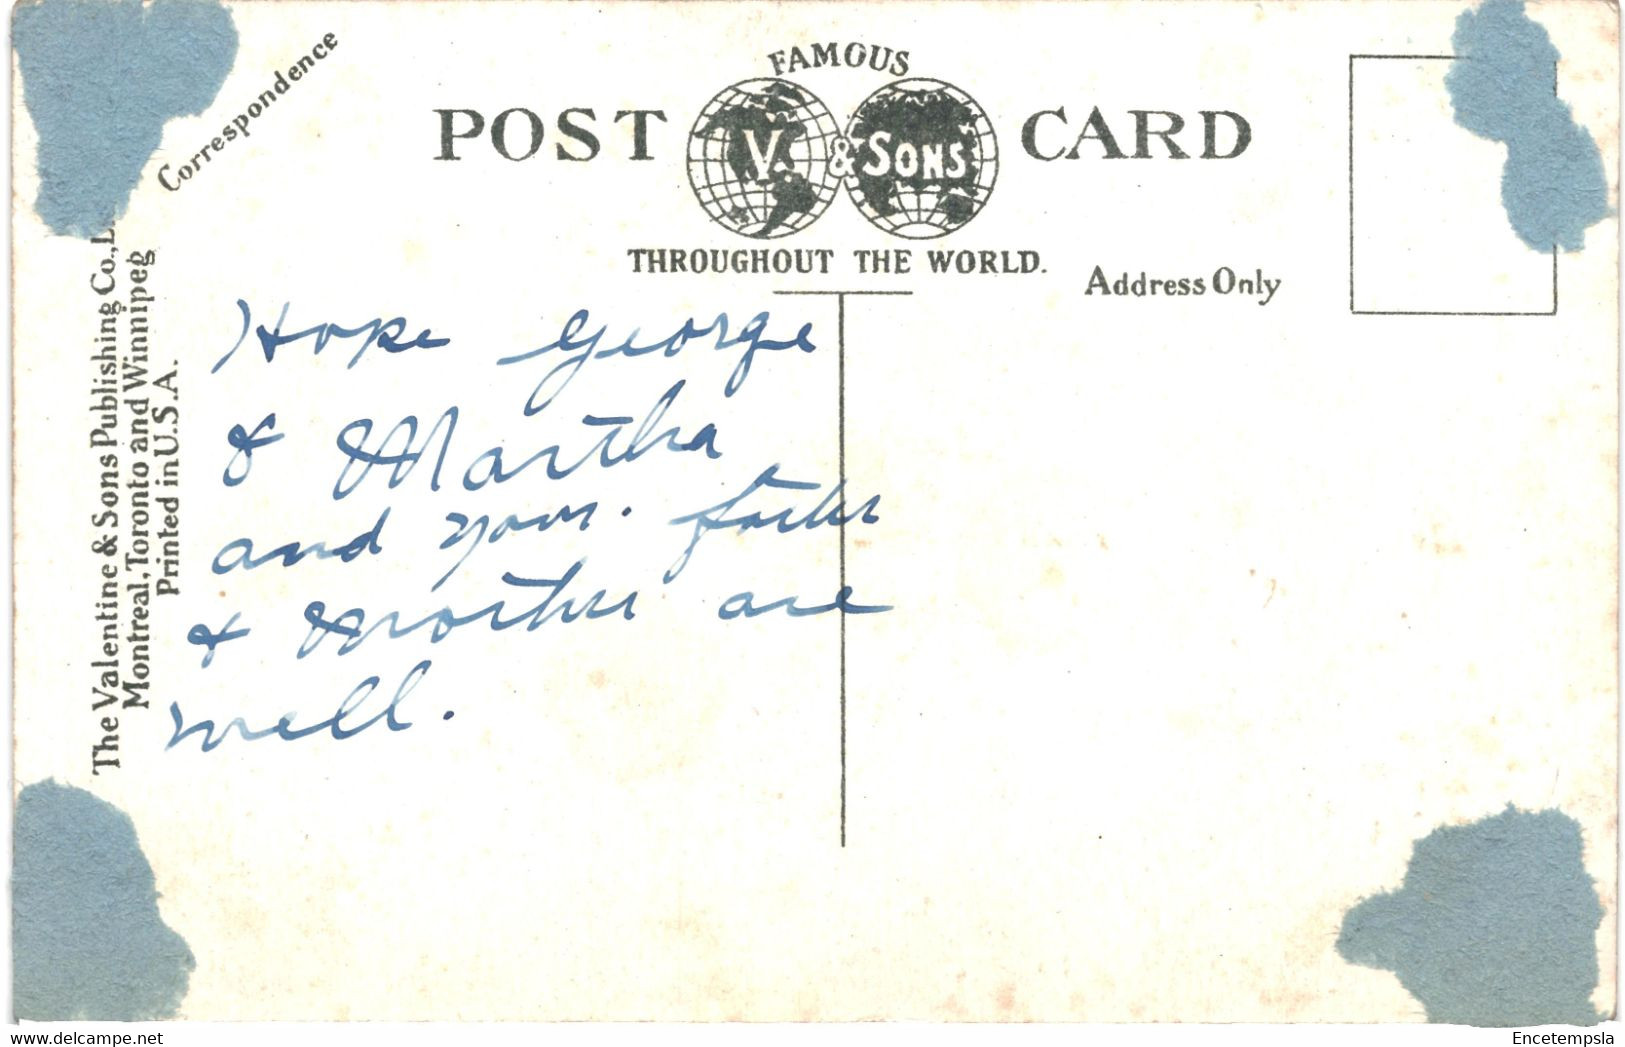 Correspondence
FAMOUS
POST V. & SONS CARD
THROUGHOUT THE WORLD.
Address Only
The Valentine & Sons Publishing Co., L
Montreal, Toronto and Winnipeg
Printed in U.S.A.
Hope George
& Martha
and your father
& Mother are
well.
Encetempsla